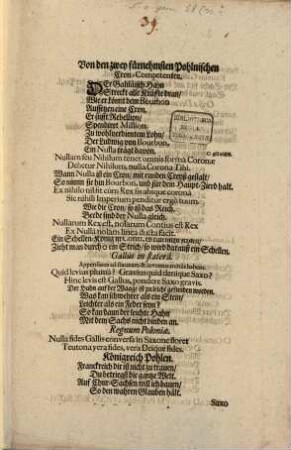 39.
Von den zwey fürnehmsten Pohlnischen
Cron-Competenten,
DEr Gallikisch Hahn
Streckt alle Kräffte dran/
Wie er könt dem Bourbon
Auffsetzen eine Cron.
Er stifft Rebellion/
Spendiret Million:
Zu wohlverdientem Lohn/
Der Ludwig von Bourbon.
Ein Nulla trägt davon.
Nullam seu Nihilum tenet omnis forma Coronæ
Debetur Nihilum, nulla Corona Tibi.
Wann Nulla ist ein Cron, mit runden Creyß gestalt/
So nimm sie hin Bourbon, und zier dein Haupt-Zierd halt.
Ex nihilo nil fit cum Rex sis absque corona
Sic nihili Imperium penditur ergo tuum.
Wie die Cron/ so ist das Reich.
Beede sind der Nulla gleich.
Nullarum Rex est, nolarum Contius est Rex
Ex Nullâ nolam linea ducta facit.
Zieht man durch o ein Strich, so wird daraus ein Schellen.
Gallus in staterâ.
Quid levius plumâ? Gravius quid denique Saxo?
Hinc levis est Gallus, pondere Saxo gravis.
Der Hahn auf der Waag ist zu leicht gefunden worden.
Was kan schwehrer als ein Stein/
Leichter als ein Feder seyn?
So kan dann der leichte Hahn
Mit dem Sachs nicht binden an.
Regnum Poloniæ.
Nulla fides Gallis conversa in Saxone floret
Teutona vera fides, vera Deique fides.
Königreich Pohlen.
Franckreich dir ist nicht zu trauen/
Du betriegst die gantze Welt.
Auf Chur-Sachsen will ich bauen/
So den wahren Glauben hält.
Saxo